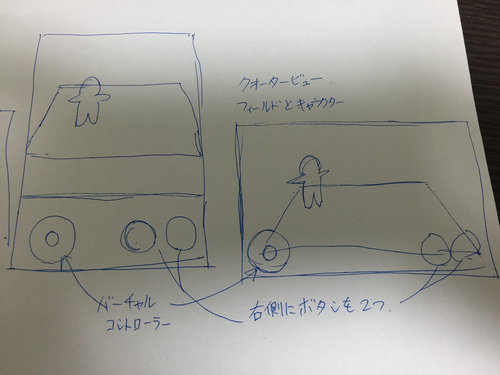 クオータービュー.
フィールドとキャラクター
バーチャル
コントローラー
右側にボタンを2つ.